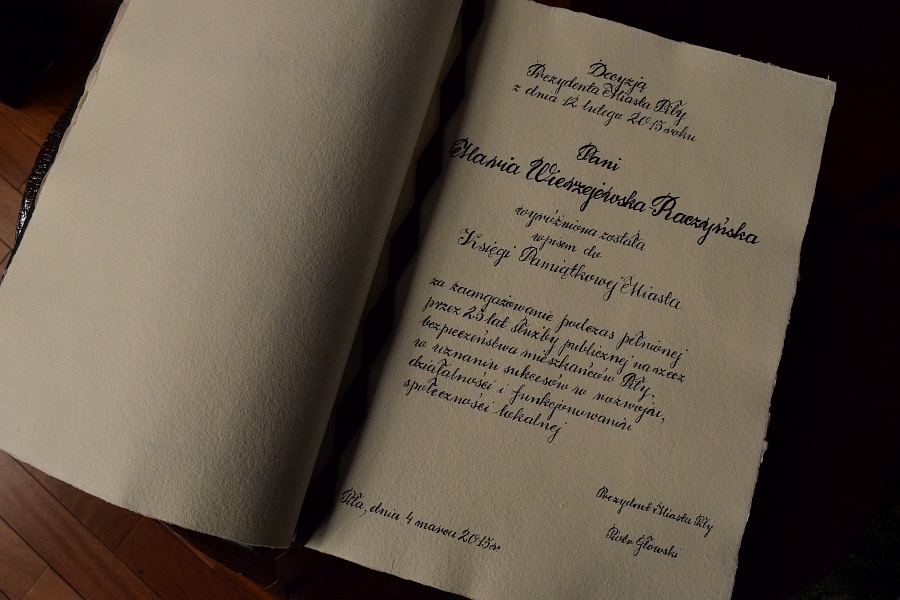 Decyzją
Prezydenta Miasta Piły
z dnia 12 lutego 2015 roku
Pani
Maria Wierzejewska-Raczyńska
wyróżniona została
wpisem do
Księgi Pamiątkowej Miasta
za zaangażowanie podczas pełnionej
przez 25 lat służby publicznej na rzecz
bezpieczeństwa mieszkańców Piły.
w uznaniu sukcesów w rozwoju,
działalności i funkcjonowaniu
społeczności lokalnej
Prezydent Miasta Piły
Piotr Głowski
Piła, dnia 4 marca 2015r